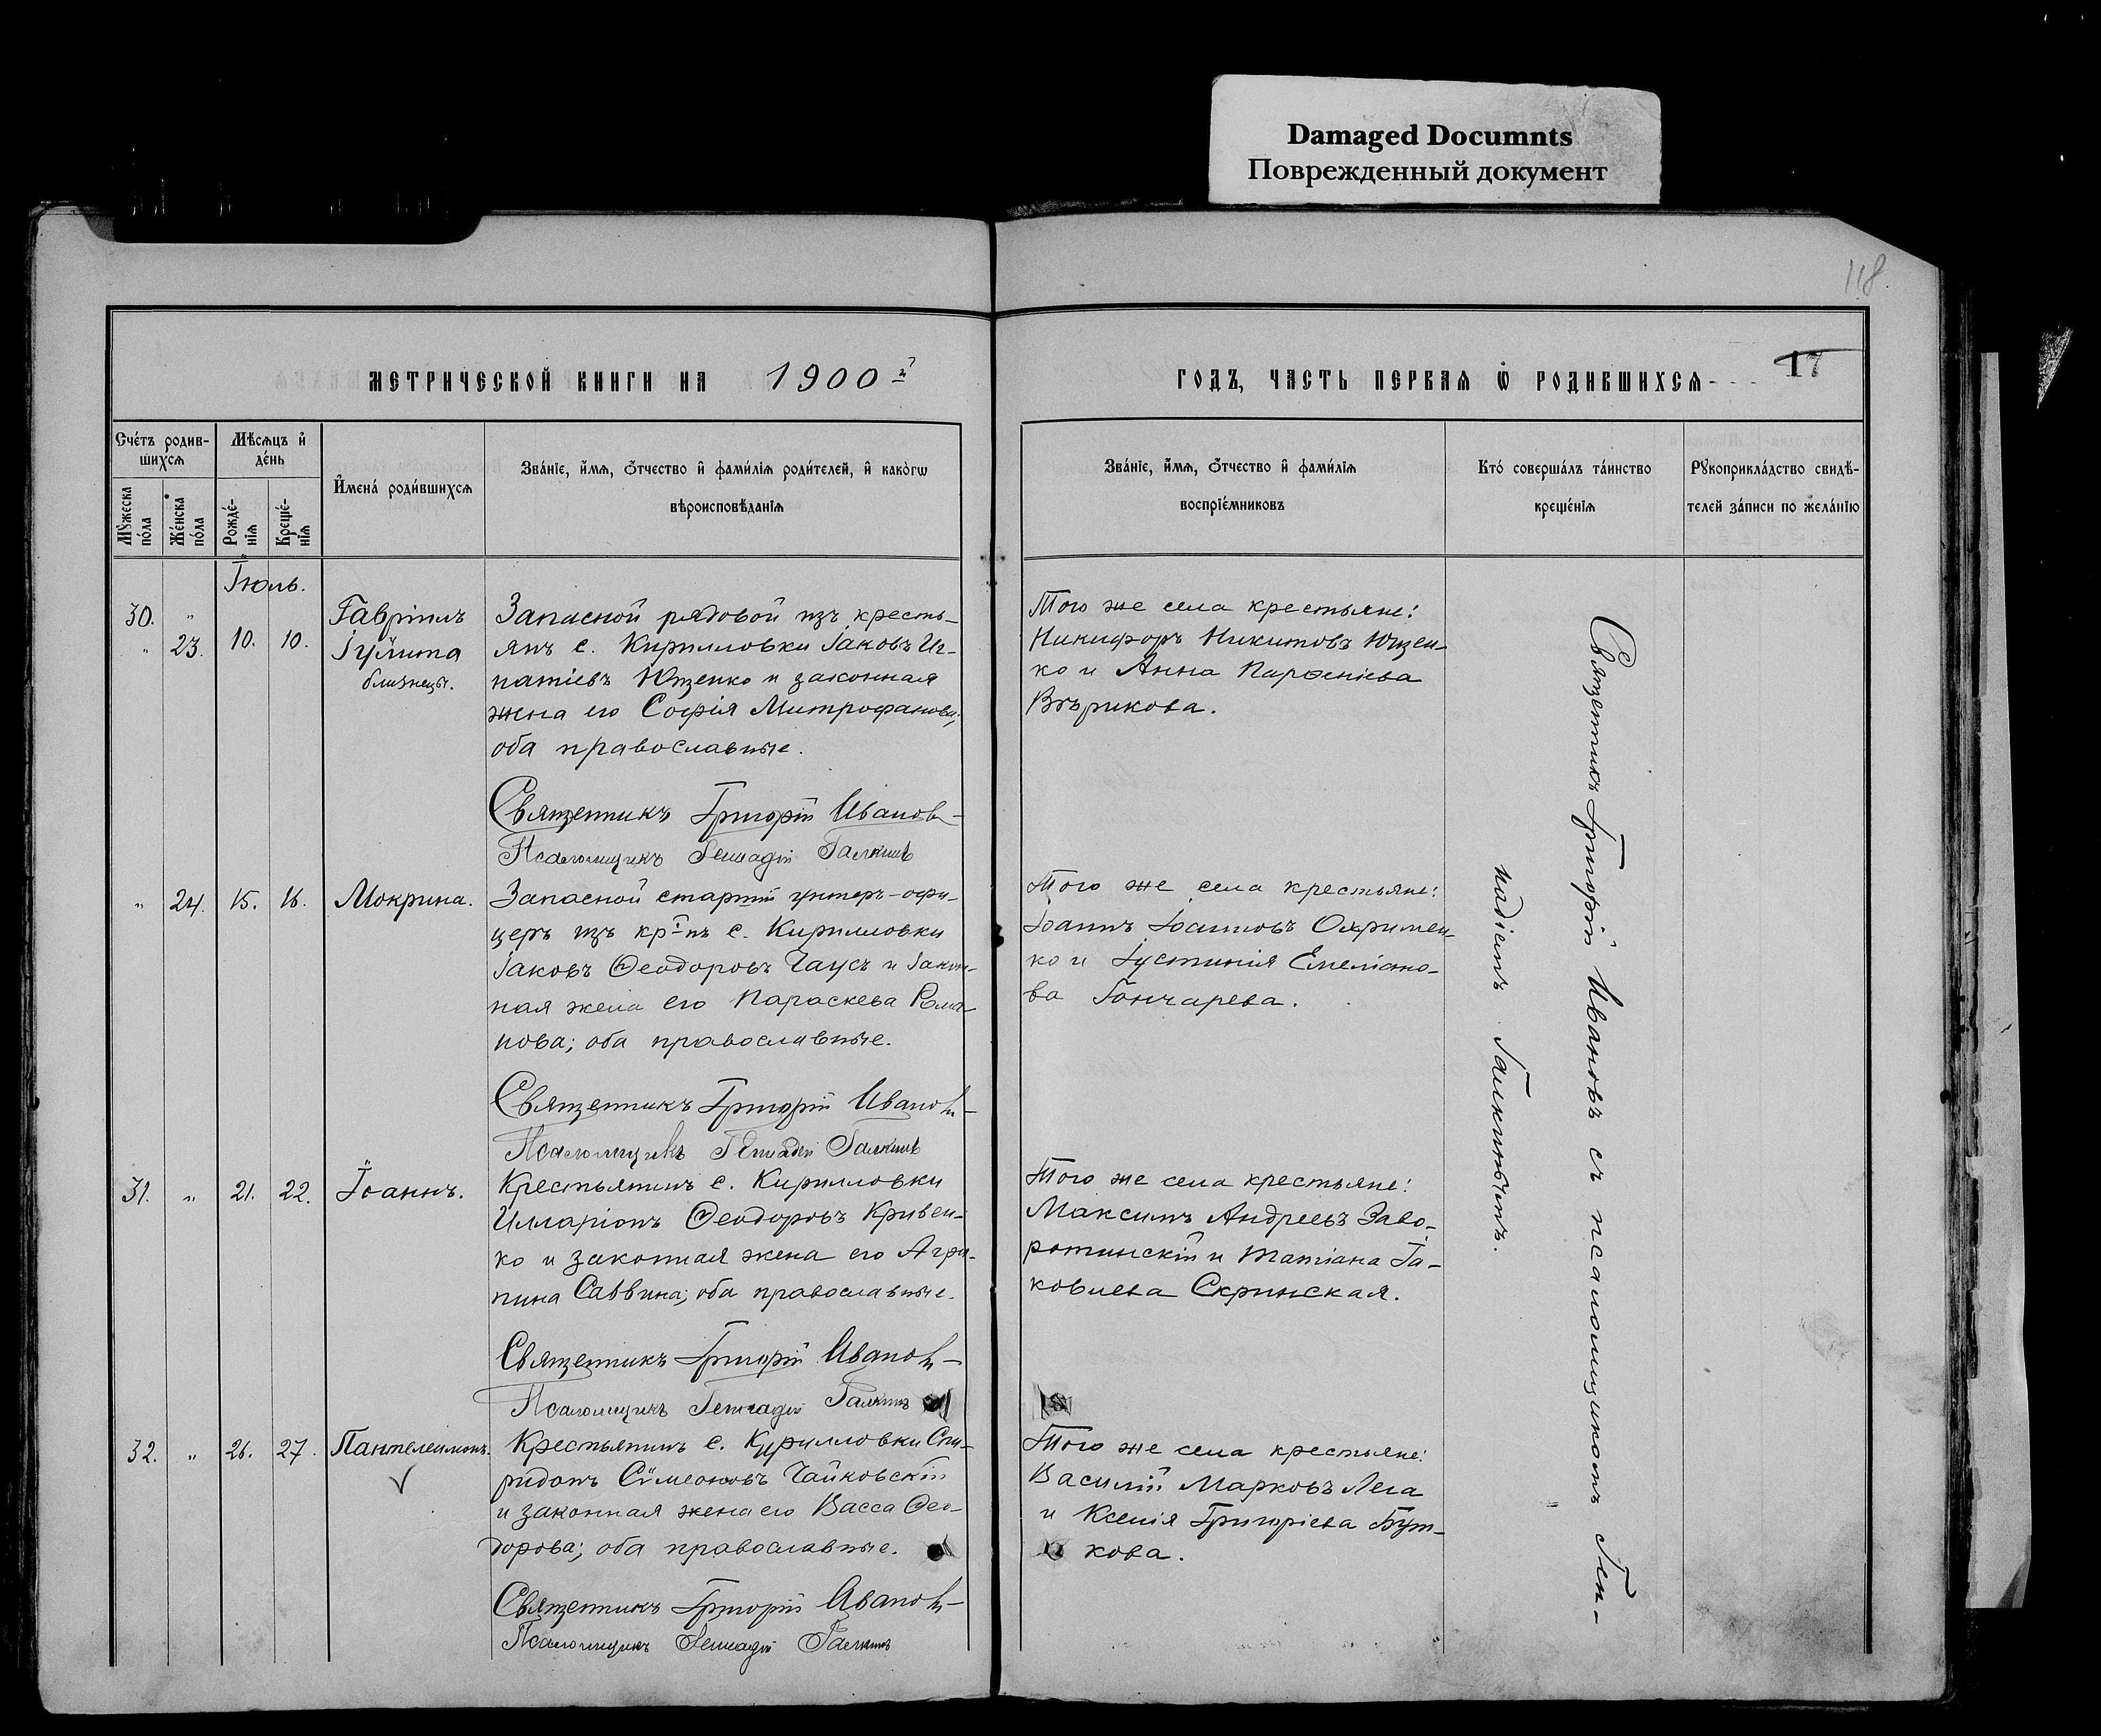 Damaged Documnts
Поврежденный документ
118.
МЕТРИЧЕСКОЙ КНИГИ НА 1900й
ГОДЪ, ЧАСТЬ ПЕРВАЯ Ѡ РОДИВШИХСЯ
17
Счетъ родив-
шихся
Мѣсяцъ и
день
Имена родившихся
Званіе, имя, отчество и фамилія родителей, и какогѡ
вѣроисповѣданія
Мужеска
пола
Женска
пола
Рожде-
нія
Креще-
нія
Званіе, имя, отчество и фамилія
воспріемниковъ
Кто совершалъ таинство
крещенія
Рукоприкладство свидѣ-
телей записи по желанію
Іюль.
30. "
" 23. 10. 10.
Гавріилъ
Іулита
близнецы.
Запасной рядовой изъ кресть-
янъ с. Кирилловки Іаковъ Иг-
натіевъ Ющенко и законная
жена его Софія Митрофанова;
оба православные.
Священникъ Григорій Ивановъ
Псаломщикъ Геннадій Галкинъ
Того же села крестьяне:
Никифоръ Никитовъ Ющен-
ко и Анна Парѳеніева
Вѣрикова.
" 24. 15. 16. Мокрина.
Запасной старшій унтеръ-офи-
церъ изъ кр-нъ с. Кирилловки
Іаковъ Ѳеодоровъ Чаусъ и закон-
ная жена его Параскева Рома-
нова; оба православные.
Священникъ Григорій Ивановъ
Псаломщикъ Геннадій Галкинъ
Того же села крестьяне:
Іоаннъ Іоанновъ Охримен-
ко и Іустинія Емеліано-
ва Гончарева.
31. " 21. 22. Іоаннъ.
Крестьянинъ с. Кирилловки
Илларіонъ Ѳеодоровъ Кривен-
ко и законная жена его Агри-
пина Саввина; оба православные.
Священникъ Григорій Ивановъ
Псаломщикъ Геннадій Галкинъ
Того же села крестьяне:
Максимъ Андреевъ Заво-
ротинскій и Татіана Іа-
ковлева Скринская.
32. " 26. 27. Пантелеимонъ.
Крестьянинъ с. Кирилловки Спи-
ридонъ Сѵмеоновъ Чайковскій
и законная жена его Васса Ѳео-
дорова; оба православные.
Священникъ Григорій Ивановъ
Псаломщикъ Геннадій Галкинъ
Того же села крестьяне:
Василій Марковъ Лега
и Ксенія Григоріева Бут-
кова.
Священникъ Григорій Ивановъ съ псаломщикомъ Ген-
надіемъ Галкинымъ.